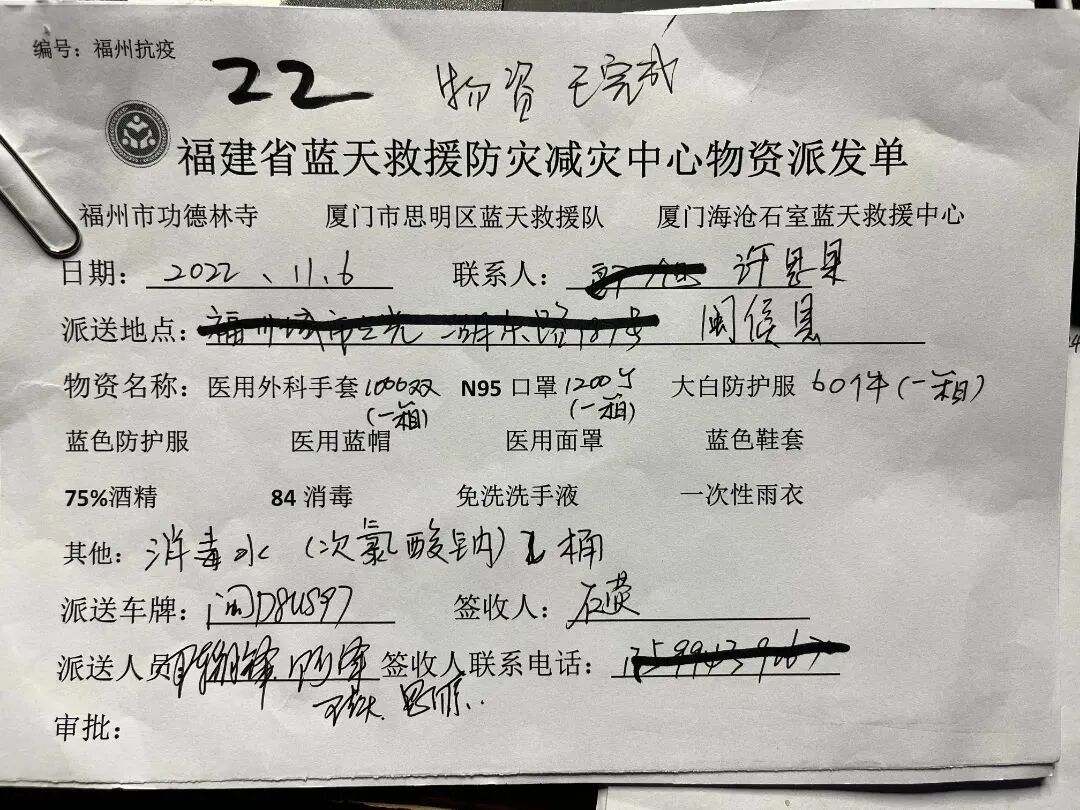 编号：福州抗疫
22 物资 已完成
福建省蓝天救援防灾减灾中心物资派发单
福州市功德林寺 厦门市思明区蓝天救援队 厦门海沧石室蓝天救援中心
日期：2022、11.6 联系人：许
派送地点：闽侯县
物资名称：医用外科手套1000双(一箱) N95 口罩1200个(一箱) 大白防护服 60件(一箱)
蓝色防护服 医用蓝帽 医用面罩 蓝色鞋套
75%酒精 84 消毒 免洗洗手液 一次性雨衣
其他：消毒水（次氯酸钠） 桶
派送车牌： 签收人：
派送人员 签收人联系电话：
审批：